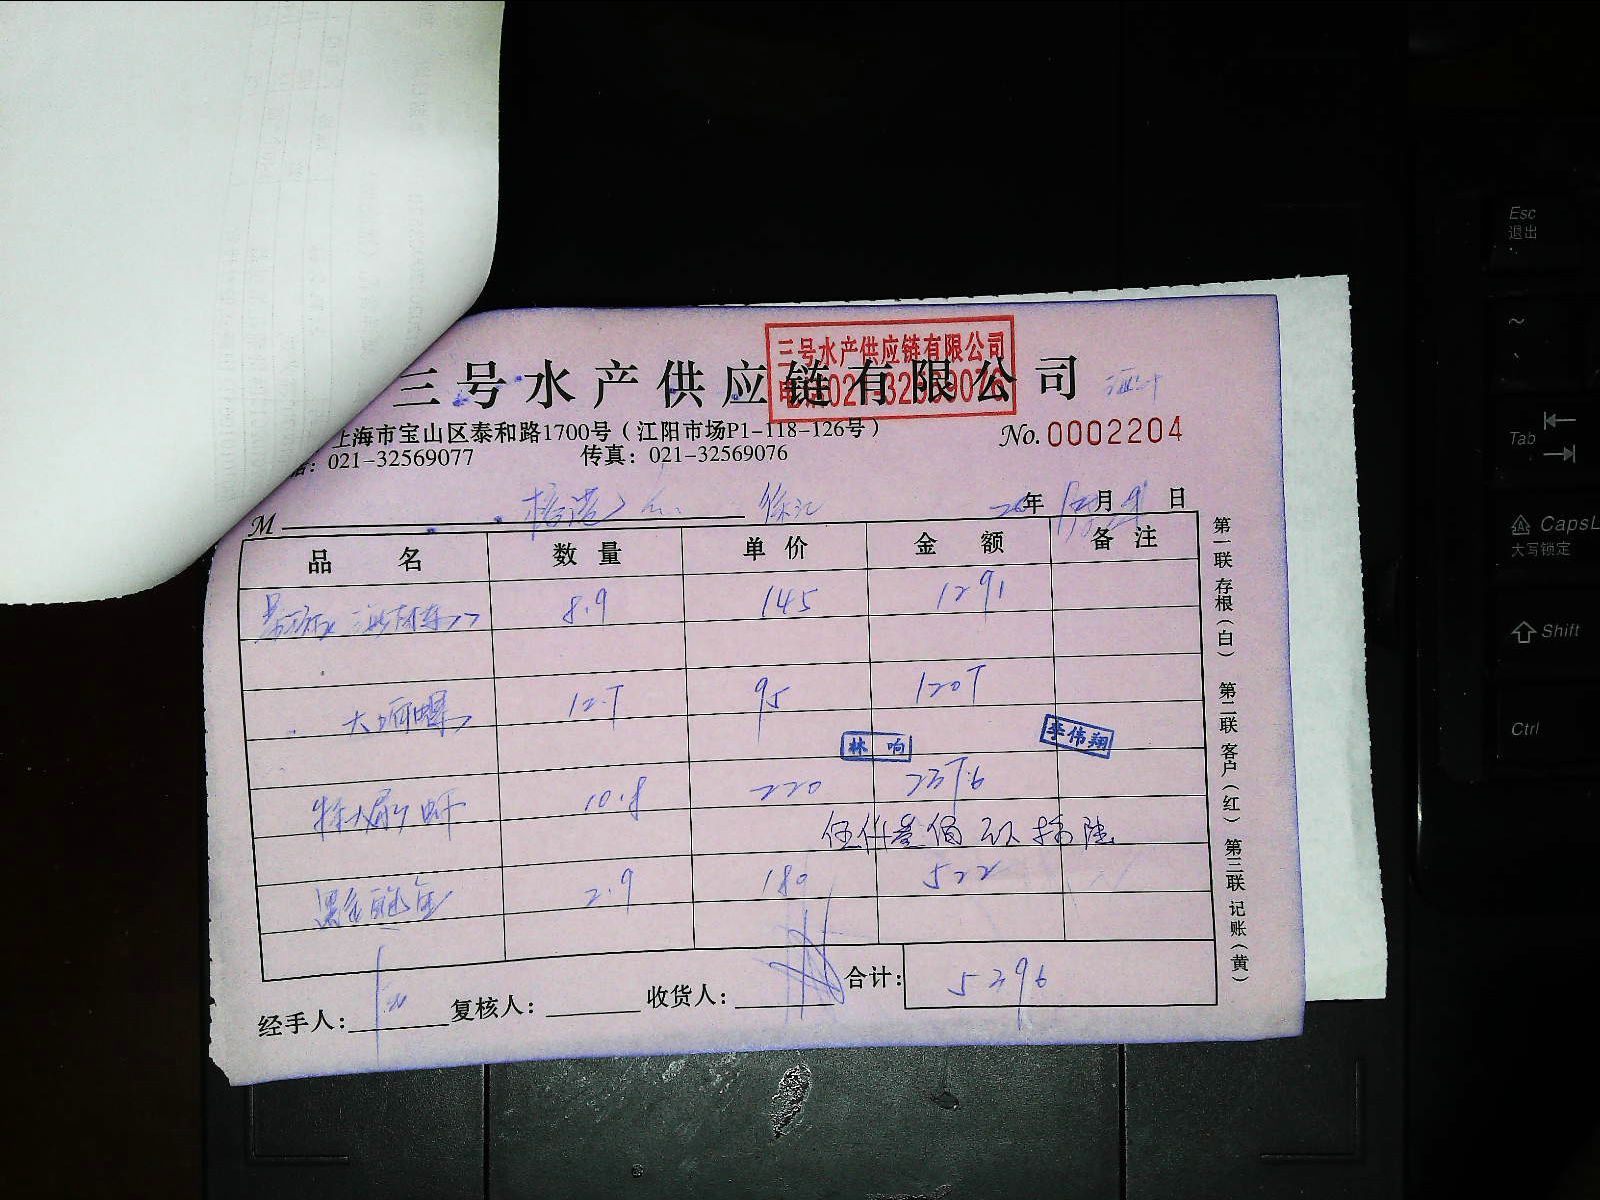 三号水产供应链有限公司
三号水产供应链有限公司
电话:021-32569076
上海市宝山区泰和路1700号（江阳市场P1-118-126号）
No.0002204
话：021-32569077 传真：021-32569076
M 徐汇 年 月 日
品名 数量 单价 金额 备注
8.9 145 1291
大响螺 12.7 95 1207
林响 李伟翔
特大扇贝 10.8 220 2376
伍仟叁佰玖拾陆
2.9 180 522
合计：5396
经手人： 复核人： 收货人：
第一联 存根（白） 第二联 客户（红） 第三联 记账（黄）
Esc
退出
~
Tab
CapsL
大写锁定
Shift
Ctrl